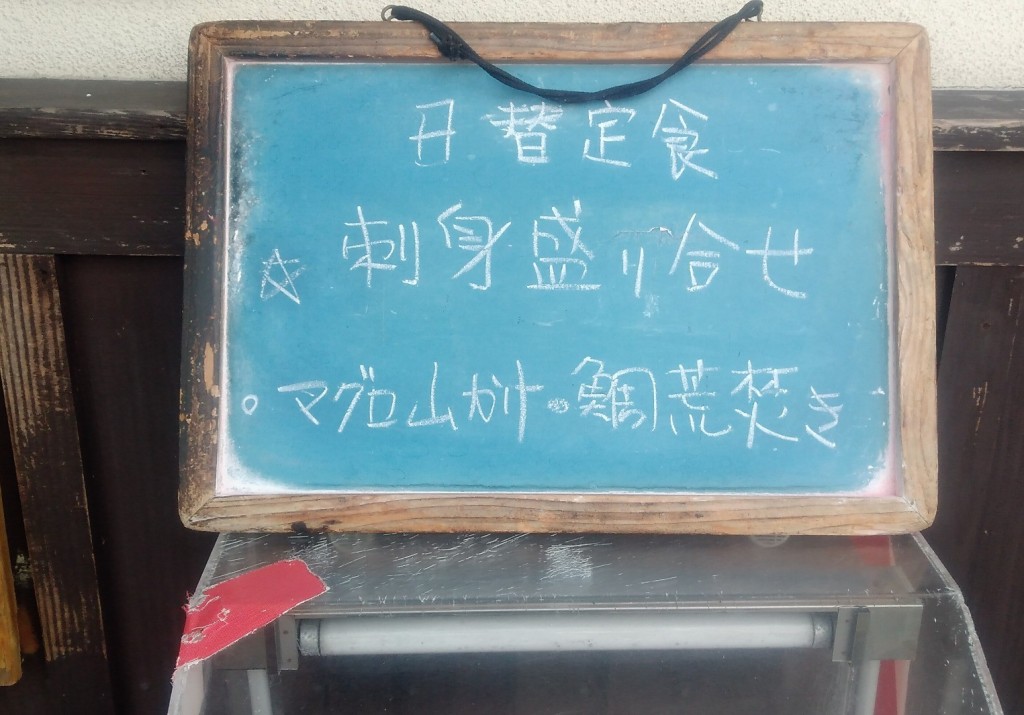 日替定食
☆ 刺身盛り合せ
○ マグロ山かけ・鯛荒焚き